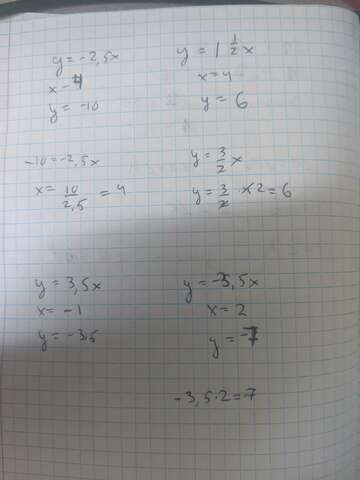 y = -2,5x
x - 4
y = -10
-10 = -2,5x
x = 10/2,5 = 4
y = 1 1/2 x
x = 4
y = 6
y = 3/2 x
y = 3/2 · 42 = 6
y = 3,5x
x = -1
y = -3,5
y = -3,5x
x = 2
y = -7
-3,5 · 2 = -7